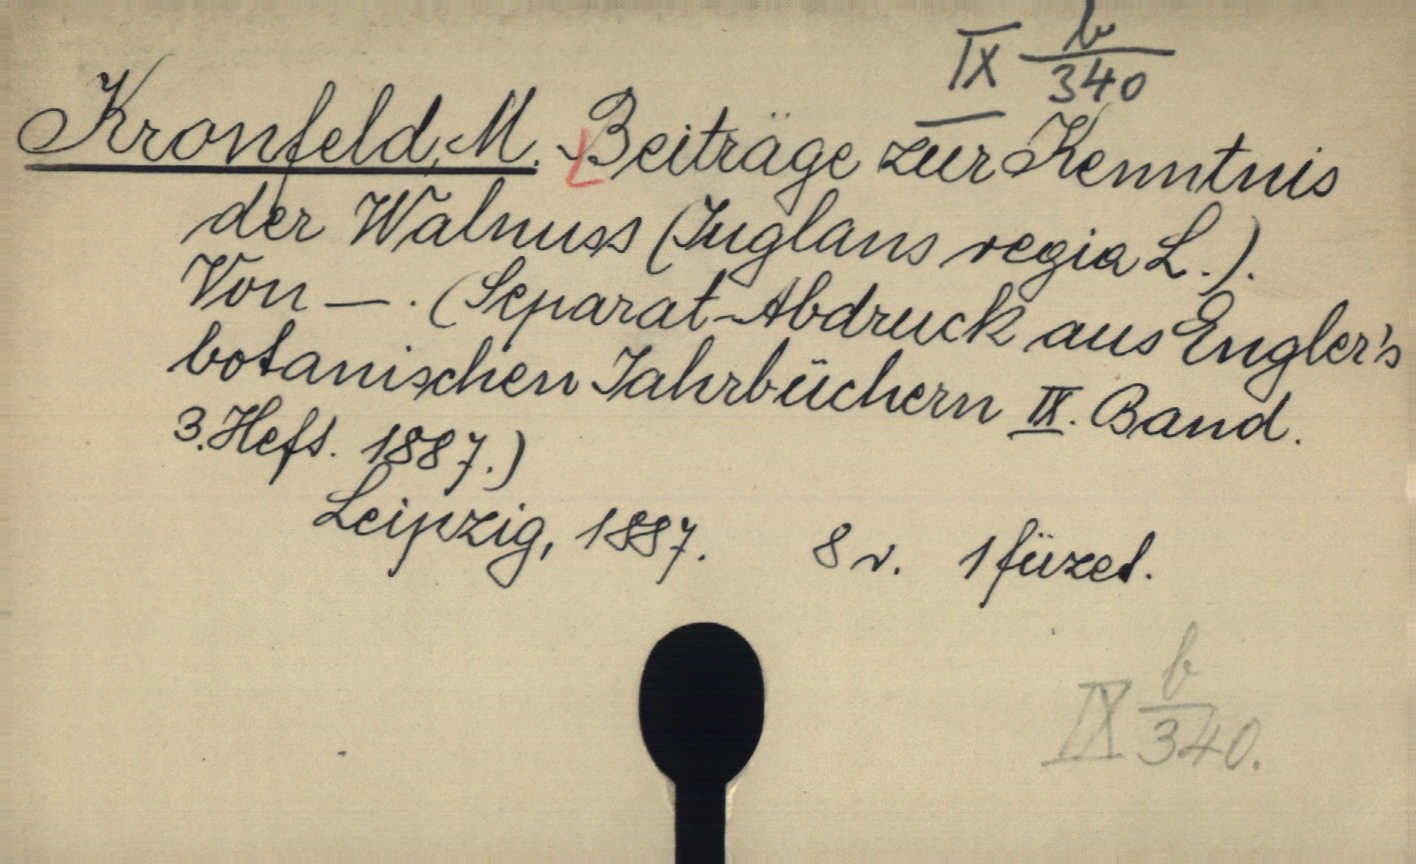 IX b/340
Kronfeld, M. Beiträge zur Kenntnis
der Walnuss (Juglans regia L.).
Von —. (Separat-Abdruck aus Engler's
botanischen Jahrbüchern IX. Band.
3. Heft. 1887.)
Leipzig, 1887. 8 r. 1 füzet.
IX b/340.